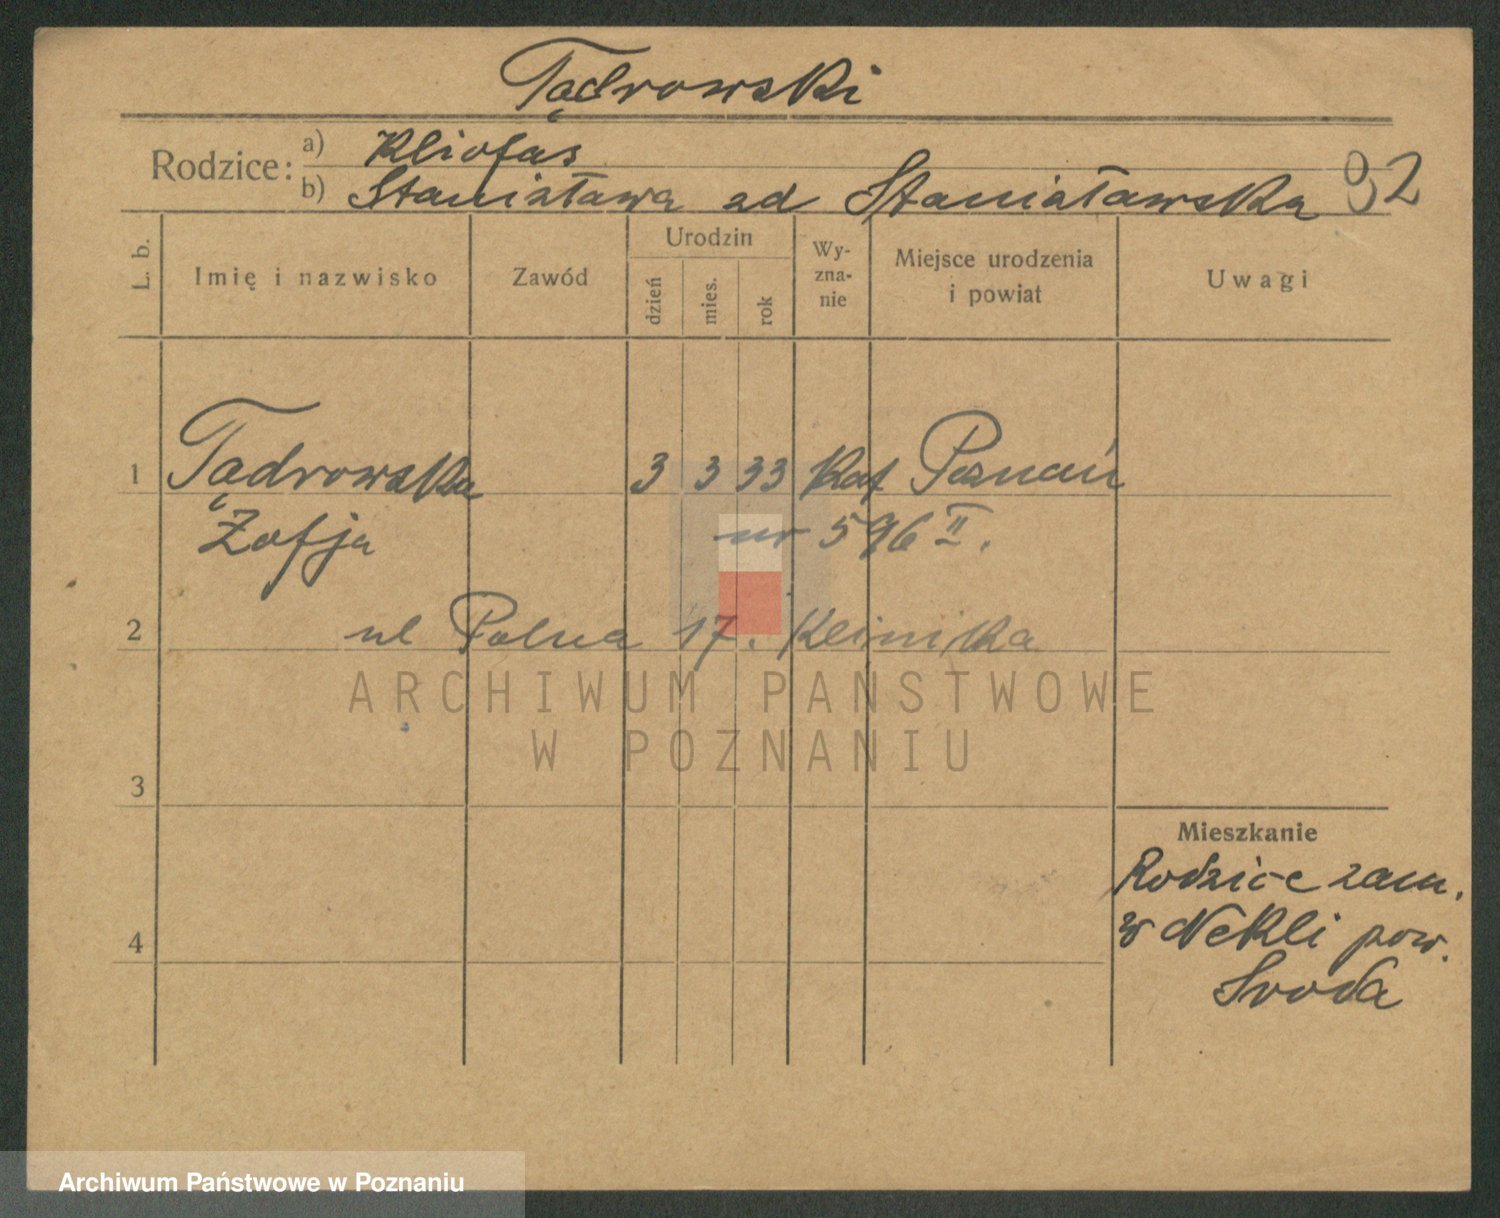 Tądrowski
Rodzice: a) Kliofas
b) Stanisława zd Stanisławska 92
L. b. Imię i nazwisko Zawód Urodzin dzień mies. rok Wyzna-nie Miejsce urodzenia i powiat Uwagi
1 Tądrowska 3 3 33 Kat Poznań
Zofja nr 596 II.
2 ul Polna 17. Klinika
ARCHIWUM PAŃSTWOWE
W POZNANIU
3
Mieszkanie
Rodzice zam.
4 w Nekli pow.
Sroda
Archiwum Państwowe w Poznaniu